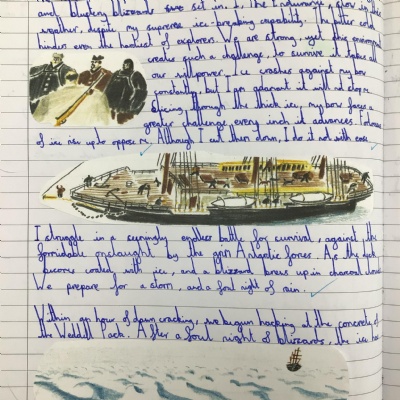 and blustery blizzards have set in. I, the Endurance, slow in this
weather, despite my supreme ice-breaking capability. The bitter cold
hinders even the hardiest of explorers. We are strong, yet this environment
creates such a challenge, to survive it takes all
our willpower. Ice crashes against my bow
constantly, but I am adamant it will not stop me.
Slicing through the thick ice, my bow faces a
greater challenge every inch it advances.
of ice rise up to oppose me. Although I cut them down, I do it not with ease.
I struggle in a seemingly endless battle for survival, against the
formidable onslaught by the grim Antarctic forces. As the deck
becomes coated with ice, and a blizzard brews up in charcoal clouds
We prepare for a storm, and a foul night of rain.
Within an hour of dawn cracking, we begun hacking at the concrete of
the Weddell Pack. After a foul night of blizzards, the ice had